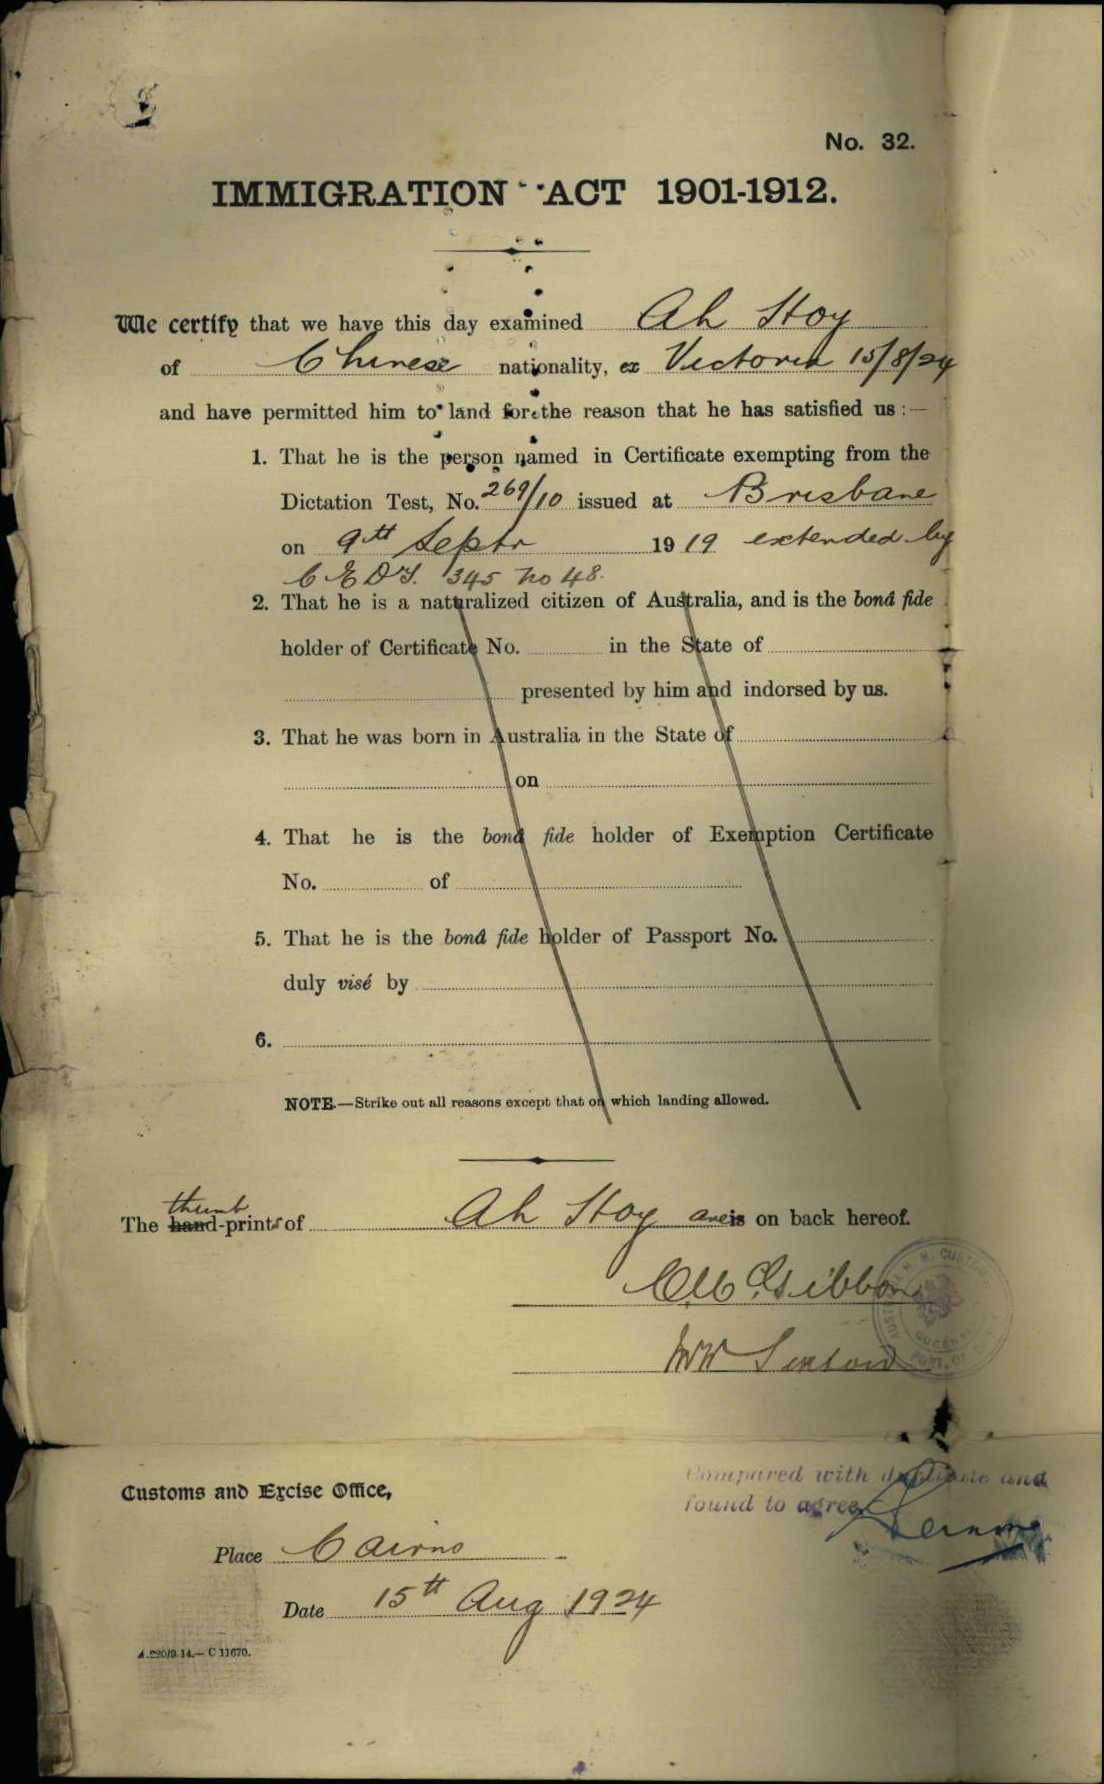 No. 32.
IMMIGRATION ACT 1901-1912.
We certify that we have this day examined Ah Hoy
of Chinese nationality, ex Victoria 15/8/24
and have permitted him to land for the reason that he has satisfied us:—
1. That he is the person named in Certificate exempting from the
Dictation Test, No. 269/10 issued at Brisbane
on 9th Septr 1919 extended by
C E D T. 345 No 48.
2. That he is a naturalized citizen of Australia, and is the bonâ fide
holder of Certificate No. in the State of
presented by him and indorsed by us.
3. That he was born in Australia in the State of
on
4. That he is the bonâ fide holder of Exemption Certificate
No. of
5. That he is the bonâ fide holder of Passport No.
duly visé by
6.
NOTE.—Strike out all reasons except that on which landing allowed.
thumb
The hand-prints of Ah Hoy are is on back hereof.
C McGibbon
Customs and Excise Office,
Compared with duplicate and
found to agree
Place Cairns
Date 15th Aug 1924
A.220/9.14.—C 11670.